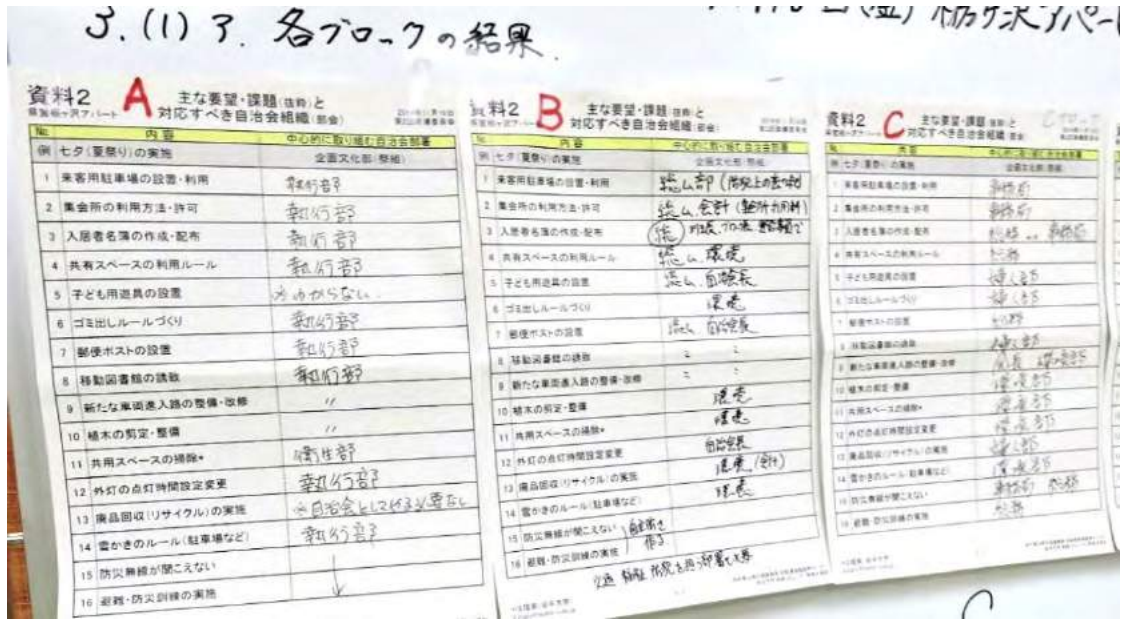 3.(1)ア. 各ブロックの結果.
資料2 A 主な要望・課題(抜粋)と
対応すべき自治会組織(部会)
No. 内容 中心的に取り組む自治会部署
例 七夕(夏祭り)の実施 企画文化部(祭組)
1 来客用駐車場の設置・利用 執行部
2 集会所の利用方法・許可 執行部
3 入居者名簿の作成・配布 執行部
4 共有スペースの利用ルール 執行部
5 子ども用遊具の設置 ※わからない.
6 ゴミ出しルールづくり 執行部
7 郵便ポストの設置 執行部
8 移動図書館の誘致 執行部
9 新たな車両進入路の整備・改修 〃
10 植木の剪定・整備 〃
11 共用スペースの掃除* 衛生部
12 外灯の点灯時間設定変更 執行部
13 廃品回収(リサイクル)の実施 ※自治会としてやる必要なし
14 雪かきのルール(駐車場など) 執行部
15 防災無線が聞こえない
16 避難・防災訓練の実施
資料2 B 主な要望・課題(抜粋)と
対応すべき自治会組織(部会)
No. 内容 中心的に取り組む自治会部署
例 七夕(夏祭り)の実施 企画文化部(祭組)
1 来客用駐車場の設置・利用 総ム部
2 集会所の利用方法・許可 総ム、会計
3 入居者名簿の作成・配布
4 共有スペースの利用ルール 総ム、環境
5 子ども用遊具の設置 総ム、自治会長
6 ゴミ出しルールづくり 環境
7 郵便ポストの設置 総ム 自治会長
8 移動図書館の誘致
9 新たな車両進入路の整備・改修
10 植木の剪定・整備 環境
11 共用スペースの掃除* 環境
12 外灯の点灯時間設定変更 自治会長
13 廃品回収(リサイクル)の実施 環境、(会計)
14 雪かきのルール(駐車場など) 環境
15 防災無線が聞こえない
16 避難・防災訓練の実施 作る
資料2 C 主な要望・課題(抜粋)と
対応すべき自治会組織(部会)
No. 内容 中心的に取り組む自治会部署
例 七夕(夏祭り)の実施 企画文化部(祭組)
1 来客用駐車場の設置・利用 事務局
2 集会所の利用方法・許可 事務局
3 入居者名簿の作成・配布 事務局
4 共有スペースの利用ルール 総務
5 子ども用遊具の設置 婦人部
6 ゴミ出しルールづくり 婦人部
7 郵便ポストの設置 総務
8 移動図書館の誘致 婦人部
9 新たな車両進入路の整備・改修 環境部
10 植木の剪定・整備 環境部
11 共用スペースの掃除* 環境部
12 外灯の点灯時間設定変更 環境部
13 廃品回収(リサイクル)の実施 婦人部
14 雪かきのルール(駐車場など) 環境部
15 防災無線が聞こえない 事務局 総務
16 避難・防災訓練の実施 総務